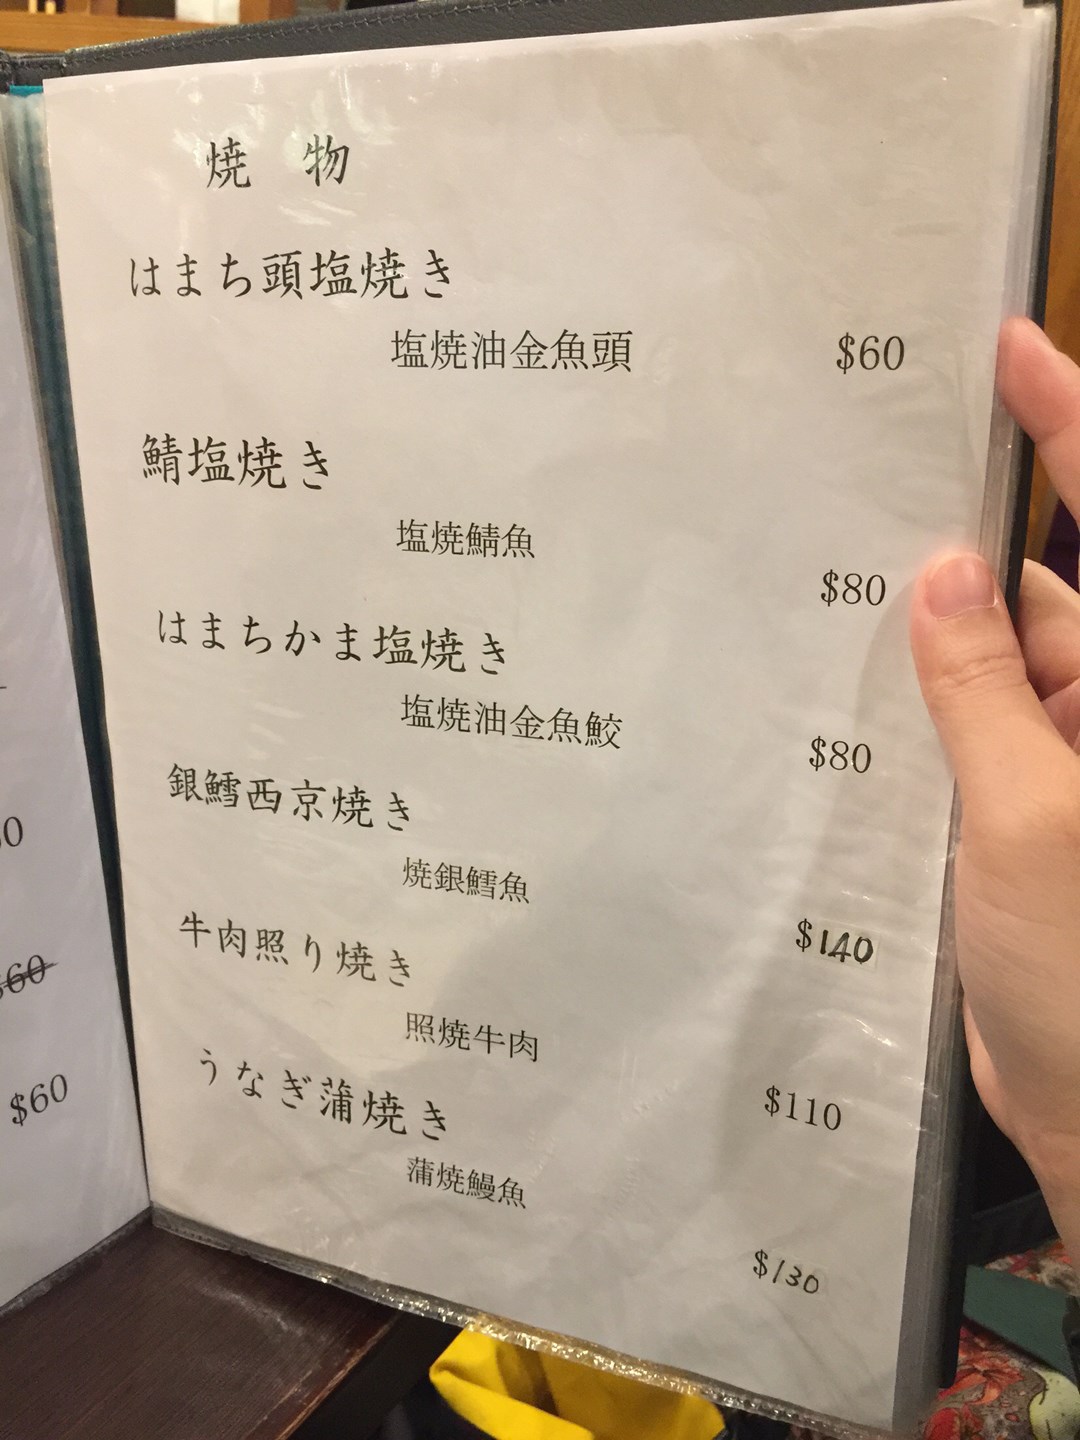 焼 物
はまち頭塩焼き
塩焼油金魚頭 $60
鯖塩焼き
塩焼鯖魚
$80
はまちかま塩焼き
塩焼油金魚鮫
$80
銀鱈西京焼き
焼銀鱈魚
$140
牛肉照り焼き
照焼牛肉
$110
うなぎ蒲焼き
蒲焼鰻魚
$130
$60